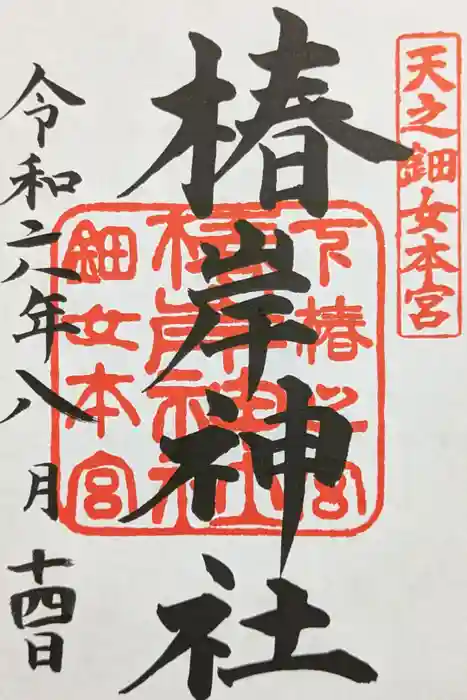 天之鈿女本宮
椿岸神社
下椿岸宮
椿岸神社
鈿女本宮
令和六年八月十四日